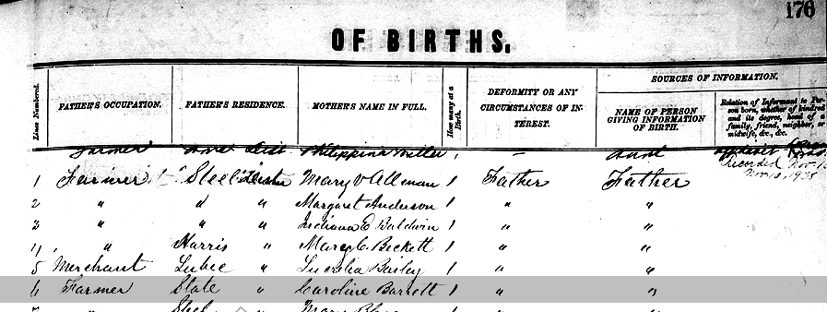 176
OF BIRTHS.
Lines Numbered. FATHER'S OCCUPATION. FATHER'S RESIDENCE. MOTHER'S NAME IN FULL. How many at a Birth. DEFORMITY OR ANY CIRCUMSTANCES OF INTEREST. SOURCES OF INFORMATION.
NAME OF PERSON GIVING INFORMATION OF BIRTH. Relation of Informant to Person born, whether of kindred and its degree, head of a family, friend, neighbor, or midwife, &c., &c.
Farmer Miller 1 – Aunt
Recorded Nov. 12, 1938
1 Farmer Steele Mary V Alleman 1 Father Father
2 " " " Margaret Anderson 1 " "
3 " " " Indiana E Baldwin 1 " "
4 " Harris " Mary C. Beckett 1 " "
5 Merchant Lubec " Bailey 1 " "
6 Farmer Slate " Caroline Barrett 1 " "
7 " Steel " Mary